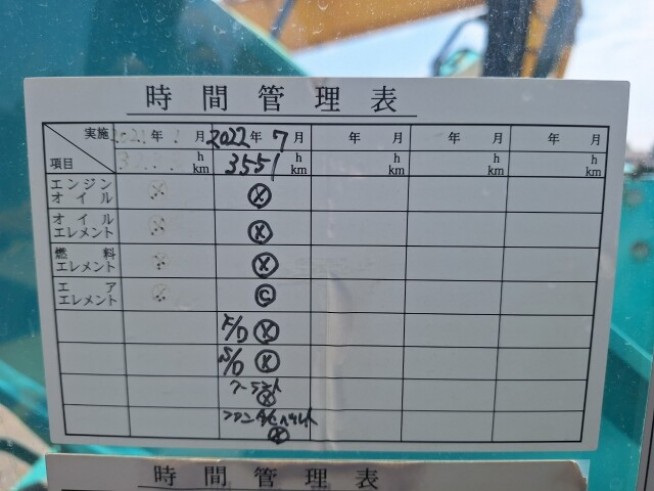 時間管理表
実施 年 月 2022年 7月 年 月 年 月 年 月
項目 h km 3551 h km h km h km h km
エンジン
オイル ⓧ
オイル
エレメント ⓧ
燃料
エレメント ⓧ
エア
エレメント ⓒ
F/D ⓧ
S/D ⓧ
クーラント
ⓧ
ファン
ⓧ
時間管理表